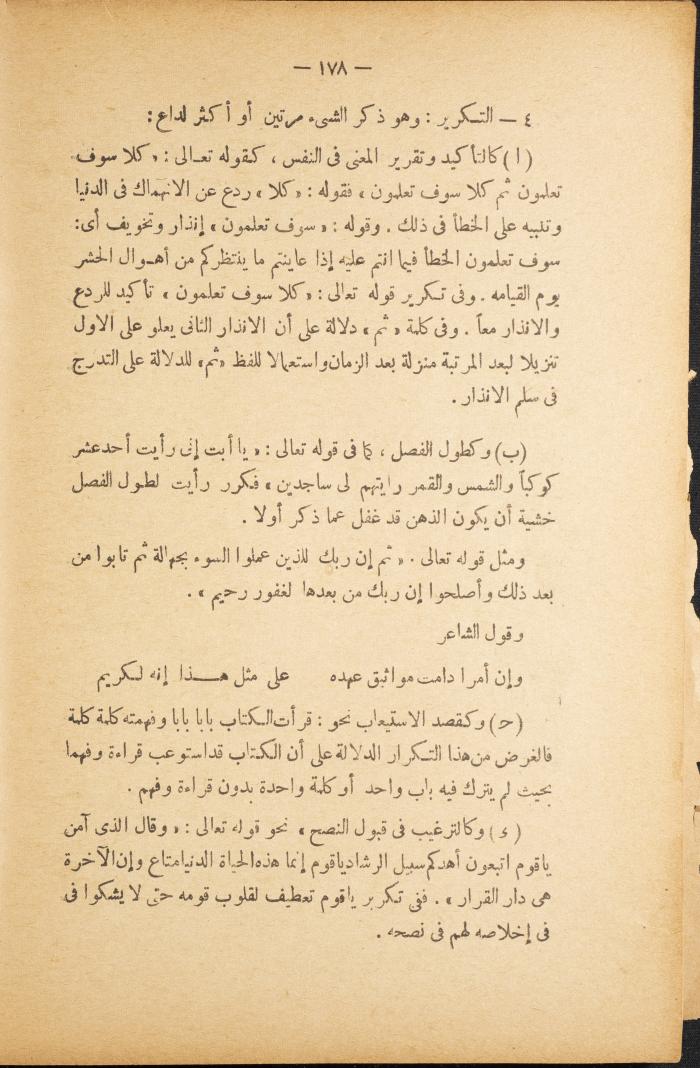 — ١٧٨ —
٤ — التكرير : وهو ذكر الشىء مرتين أو أكثر لداع :
( ا ) كالتأكيد وتقرير المعنى فى النفس ، كقوله تعالى : « كلا سوف
تعلمون ثم كلا سوف تعلمون » فقوله : « كلا » ردع عن الانهماك فى الدنيا
وتنبيه على الخطأ فى ذلك . وقوله : « سوف تعلمون » إنذار وتخويف أى :
سوف تعلمون الخطأ فيما انتم عليه إذا عاينتم ما ينتظركم من أهوال الحشر
يوم القيامه . وفى تكرير قوله تعالى : « كلا سوف تعلمون » تأكيد للردع
والانذار معاً . وفى كلمة « ثم » دلالة على أن الانذار الثانى يعلو على الاول
تنزيلا لبعد المرتبة منزلة بعد الزمان واستعمالا للفظ « ثم » للدلالة على التدرج
فى سلم الانذار .
(ب) وكطول الفصل ، كما فى قوله تعالى : « يا أبت إنى رأيت أحد عشر
كوكباً والشمس والقمر رايتهم لى ساجدين » فكرر رأيت لطول الفصل
خشية أن يكون الذهن قد غفل عما ذكر أولا .
ومثل قوله تعالى . « ثم إن ربك للذين عملوا السوء بجهالة ثم تابوا من
بعد ذلك وأصلحوا إن ربك من بعدها لغفور رحيم » .
وقول الشاعر
وإن أمرا دامت مواثيق عهده على مثل هـذا إنه لكريم
(ح) وكقصد الاستيعاب نحو : قرأت الكتاب بابا بابا وفهمته كلمة كلمة
فالغرض من هذا التكرار الدلالة على أن الكتاب قد استوعب قراءة وفهما
بحيث لم يترك فيه باب واحد أو كلمة واحدة بدون قراءة وفهم .
( ء ) وكالترغيب فى قبول النصح » نحو قوله تعالى : « وقال الذى آمن
ياقوم اتبعون أهدكم سبيل الرشاد ياقوم إنما هذه الحياة الدنيا متاع وإن الآخرة
هى دار القرار » . ففى تكرير ياقوم تعطيف لقلوب قومه حتى لا يشكوا فى
فى إخلاصه لهم فى نصحه .